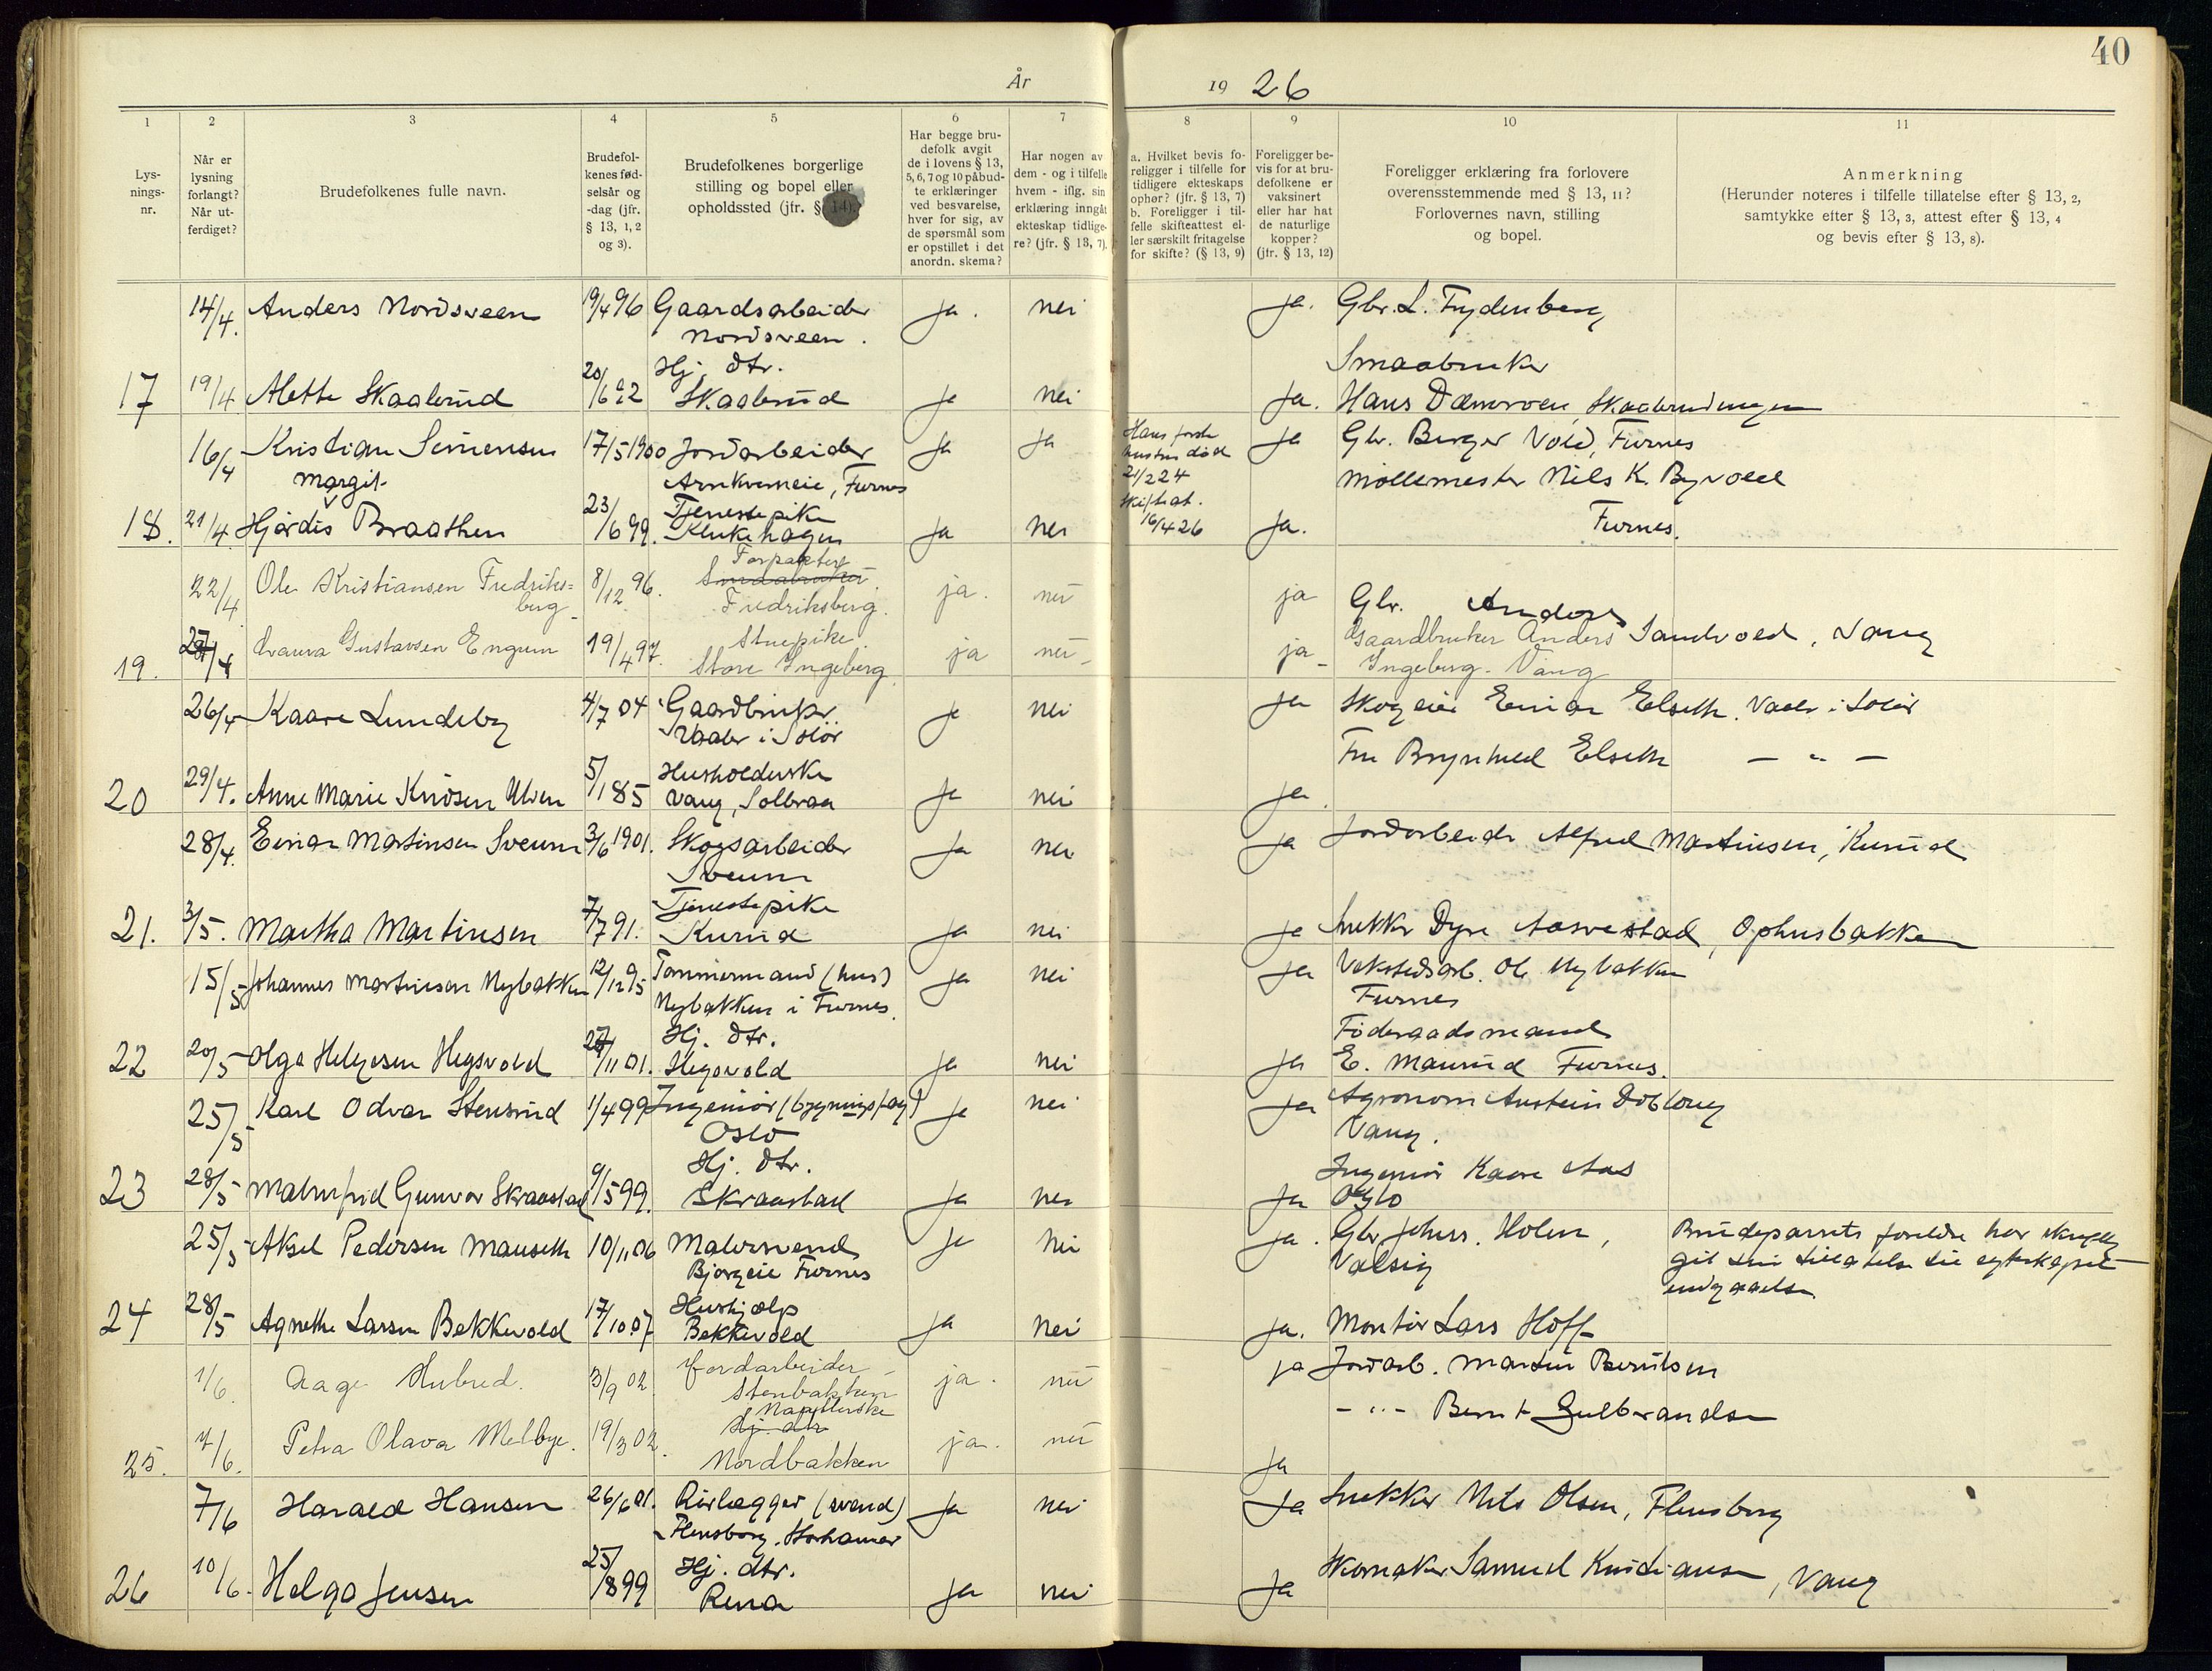 40
År 1926
1 2 3 4 5 6 7 8 9 10 11
Lysningsnr.
Når er lysning forlangt? Når utferdiget?
Brudefolkenes fulle navn.
Brudefolkenes fødselsår og -dag (jfr. § 13, 1, 2 og 3).
Brudefolkenes borgerlige stilling og bopel eller opholdssted (jfr. § 14).
Har begge brudefolk avgit de i lovens § 13, 5, 6, 7 og 10 påbudte erklæringer ved besvarelse, hver for sig, av de spørsmål som er opstillet i det anordn. skema?
Har nogen av dem - og i tilfelle hvem - iflg. sin erklæring inngåt ekteskap tidligere? (jfr. § 13, 7).
a. Hvilket bevis foreligger i tilfelle for tidligere ekteskaps ophør? (jfr. § 13, 7)
b. Foreligger i tilfelle skifteattest eller særskilt fritagelse for skifte? (§ 13, 9)
Foreligger bevis for at brudefolkene er vaksinert eller har hat de naturlige kopper? (jfr. § 13, 12)
Foreligger erklæring fra forlovere overensstemmende med § 13, 11? Forlovernes navn, stilling og bopel.
Anmerkning
(Herunder noteres i tilfelle tillatelse efter § 13, 2, samtykke efter § 13, 3, attest efter § 13, 4 og bevis efter § 13, 8).
14/4. Anders Nordsveen 19/4 96 Gaardsarbeider ja. nei ja. Gbr. L. Frydenberg
Nordsveen.
Hj. dtr. Smaabruker
17 19/4 Alette Skaabrud 20/6 Skaabrud ja nei ja. Hans
16/4 Kristian Simensen 17/5 1900 Jordarbeider ja ja Hans første hustru død 21/2 24 ja Gbr. Berger Vold, Furnes
Margit Furnes Møllemester Nils K. Byvold
18. 21/4. Hjørdis Braathen 23/6 99. Tjenestepike Klukehagen ja nei 16/4 26 ja. Furnes.
22/4 Ole Kristiansen Fredriksberg 8/12 96. Forpakter Smaabruker Fredriksberg. ja. nei ja Gbr. Anders
19. Gustavsen Engum 19/4 97. Stuepike Store Ingeberg ja nei ja Gaardbruker Anders Sandvold, Vang
Ingeberg. Vang
26/4 Kaare Lundeby 4/7 04 Gaardbruker ja nei ja Skogeier Einar Elseth. Vaaler i Solør
Vaaler i Solør Fru Brynhild Elseth — „ —
20 29/4. Anne Marie Knudsen Ulven 5/1 85 Husholderske Vang, Solbraa ja nei ja.
28/4. Einar Martinsen Sveum 3/6 1901. Skogsarbeider ja nei ja Jordarbeider Alfred Martinsen, Kurud
Sveum
21. 3/5. Martha Martinsen 7/7 91. Tjenestepike Kurud ja nei ja Snekker Dyre Aasvestad, Ophusbakken
15/5 Johannes Martinsen Nybakken 12/12 95 Tømmermand (hus) ja nei ja Verkstedsarb. Ole Nybakken
Nybakken i Furnes. Furnes
Hj. dtr. Føderaadsmand
22 20/5 Olga Helgesen Hegsvold 27/11 01. Hegsvold ja nei ja E. Maurud Furnes.
25/5 Karl Odvar Stensrud 1/4 99 Ingeniør (bygningsfag) ja nei ja Agronom Austein Dobloug
Oslo Vang.
Hj. dtr. Ingeniør Kaare Aas
23 28/5 Malmfrid Gunvor Skraastad 9/5 99. Skraastad ja nei ja Oslo
25/5 Aksel Pedersen Mauseth 10/11 06 Malersvend ja nei ja. Gbr. Johs. Holen, Brudeparrets foreldre har
Bjørgeie Furnes Valsig git sin tillatelse til egteskapets
indgaaelse.
24 28/5 Agnethe Larsen Bekkevold 17/10 07 Hushjælp Bekkevold ja nei ja. Montør Lars Hoff
1/6. Aage Hubred. 3/9 02 Jordarbeider Stenbakken ja. nei ja Jordarb. Martin Berntsen
Hj. dtr. — „ — Bernt Gulbrandsen
25. 4/6. Petra Olava Melbye. 19/3 02. Nordbakken ja. nei ja
7/6 Harald Hansen 26/6 01. Rørlægger (svend) ja nei ja Snekker Nils Olsen, Flensborg
Flensborg. Storhamar
26 10/6. Helga Jensen 25/8 99 Hj. dtr. Rena ja nei ja Skomaker Samuel Kristiansen, Vang